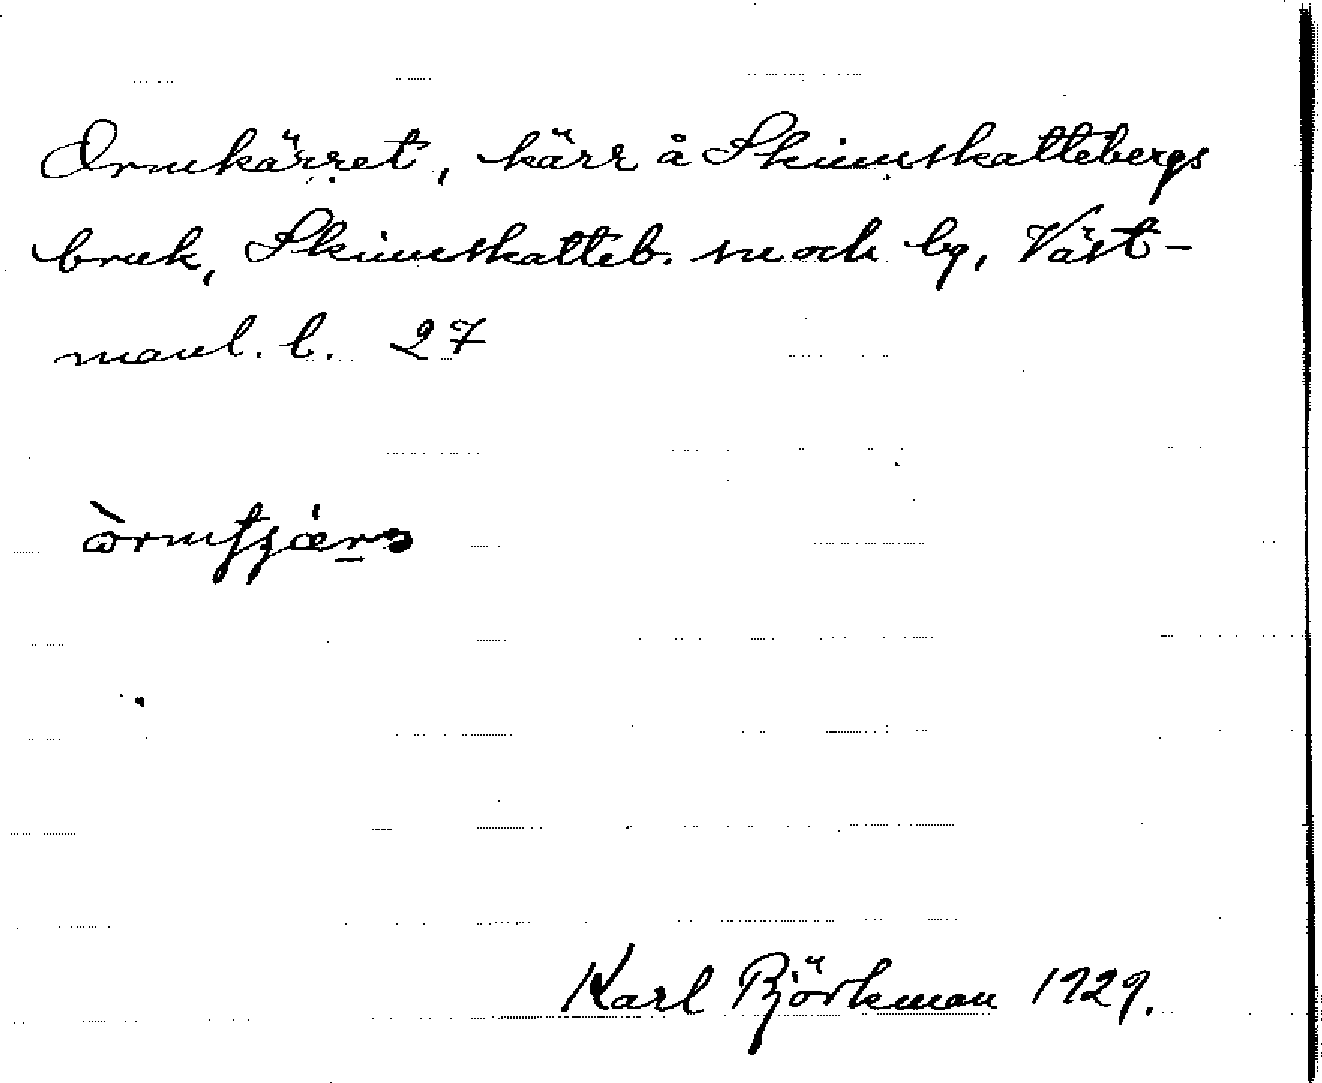 Ormkärret, kärr å Skinnskattebergs
bruk, Skinnskatteb. sn och bg, Väst-
manl. l. 27
Karl Björkman 1929.